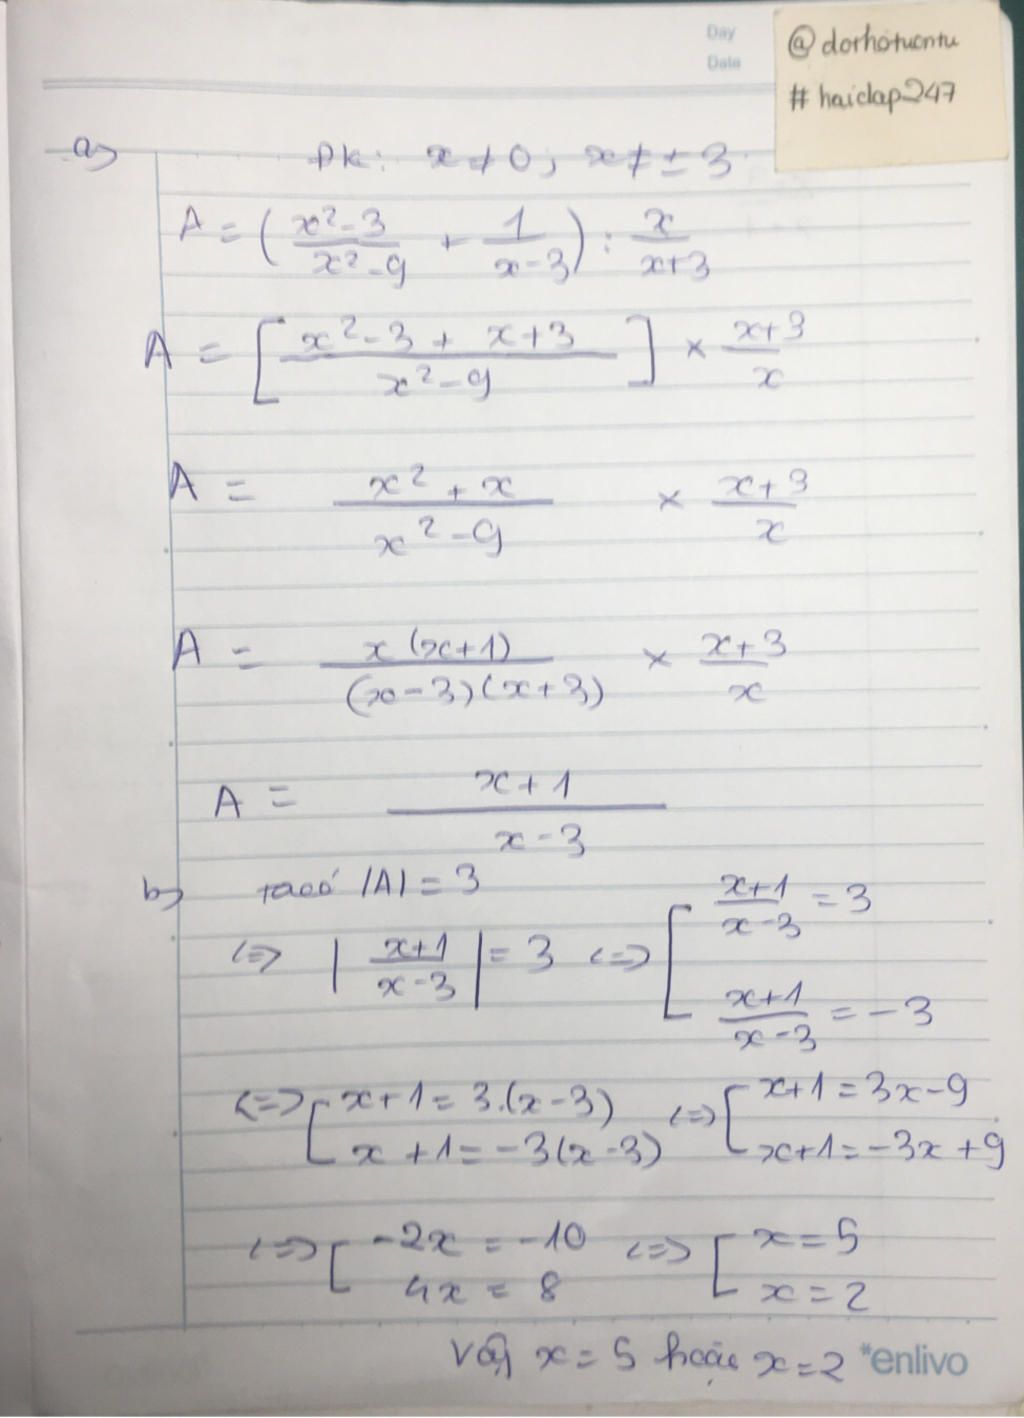 Day
Date
@dorhotuontu
#haiclap247
a) ĐK: x ≠ 0; x ≠ ± 3
A = (x²-3/x²-9 + 1/x-3) : x/x+3
A = [x²-3 + x+3/x²-9] × x+3/x
A = x²+x/x²-9 × x+3/x
A = x(x+1)/(x-3)(x+3) × x+3/x
A = x+1/x-3
b) ta có |A| = 3
<=> |x+1/x-3| = 3 <=> [x+1/x-3 = 3
x+1/x-3 = -3
<=> [x+1 = 3.(x-3) <=> [x+1 = 3x-9
x+1 = -3(x-3) x+1 = -3x+9
<=> [-2x = -10 <=> [x = 5
4x = 8 x = 2
Vậy x = 5 hoặc x = 2 *enlivo